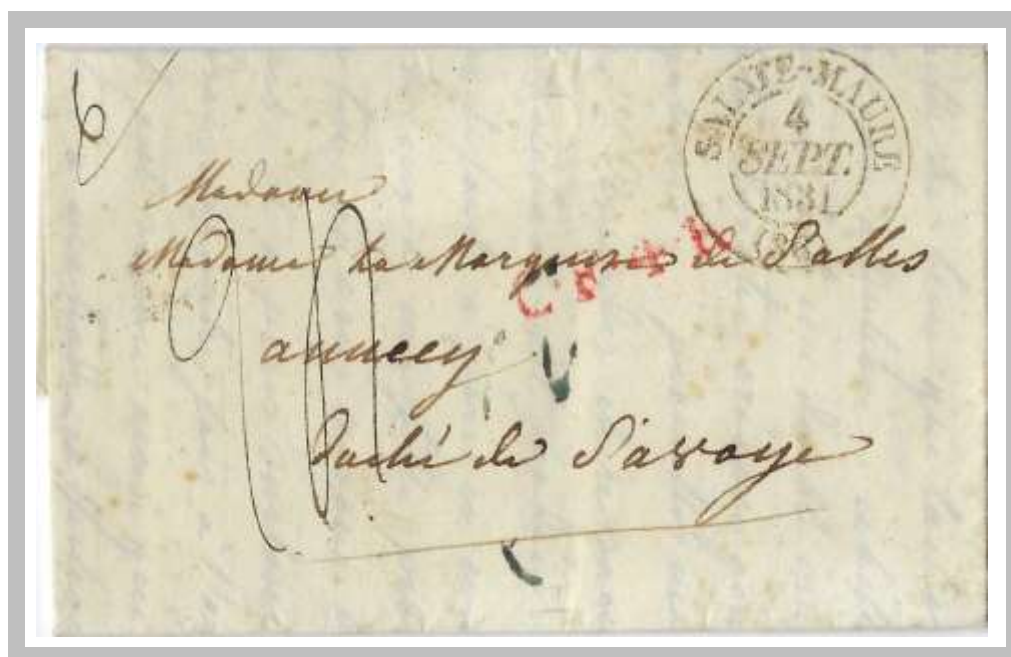 SAINTE-MAURE
4
SEPT.
1831
Madame
Madame La Marquise de Salles
annecy
Duché de Savoye